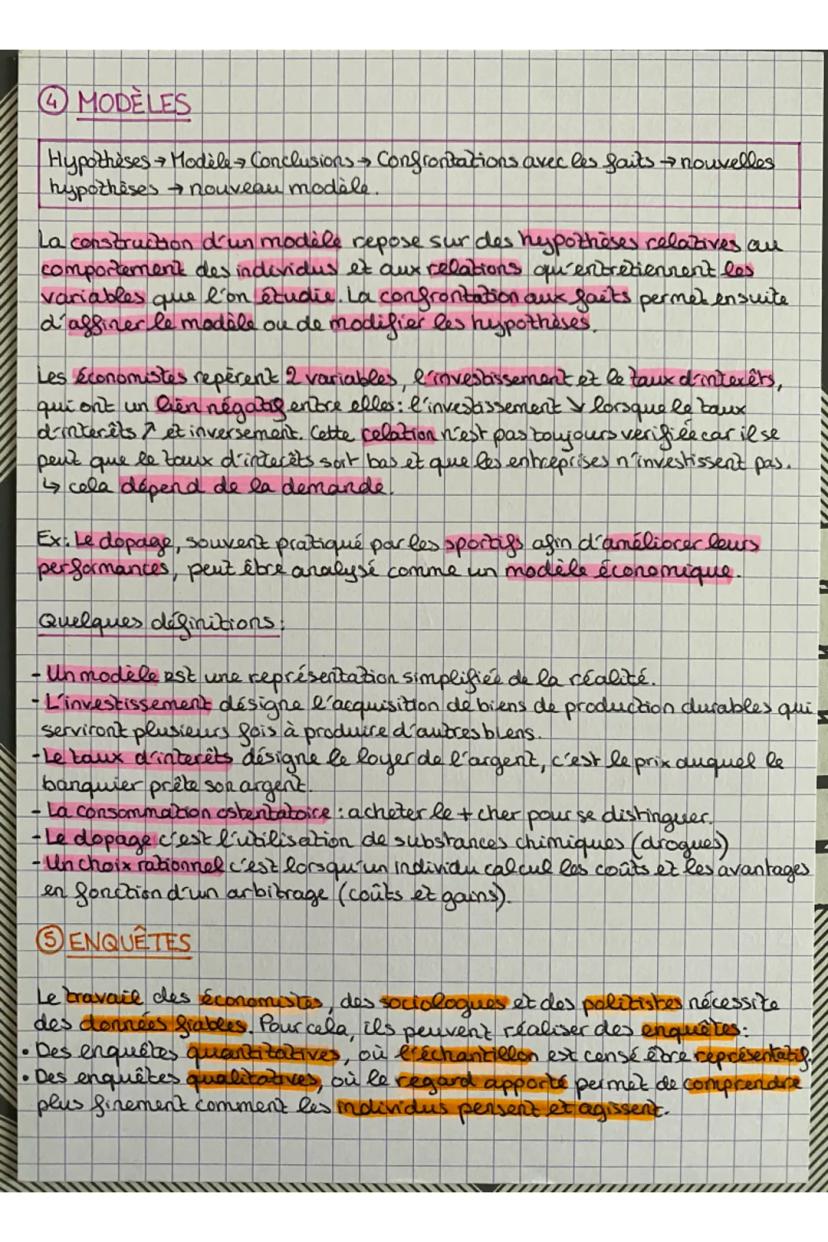 ④ MODÈLES
Hypothèses → Modèle → Conclusions → Confrontations avec les faits → nouvelles
hypothèses → nouveau modèle.
La construction d'un modèle repose sur des hypothèses relatives au
comportement des individus et aux relations qu'entretiennent les
variables que l'on étudie. La confrontation aux faits permet ensuite
d'affiner le modèle ou de modifier les hypothèses.
Les économistes repèrent 2 variables, l'investissement et le taux d'interêts,
qui ont un lien négatif entre elles : l'investissement ↘ lorsque le taux
d'interêts ↗ et inversement. Cette relation n'est pas toujours vérifiée car il se
peut que le taux d'interêts soit bas et que les entreprises n'investissent pas.
↳ cela dépend de la demande.
Ex: Le dopage, souvent pratiqué par les sportifs afin d'améliorer leurs
performances, peut être analysé comme un modèle économique.
Quelques définitions :
- Un modèle est une représentation simplifiée de la réalité.
- L'investissement désigne l'acquisition de biens de production durables qui
serviront plusieurs fois à produire d'autres biens.
- Le taux d'interêts désigne le loyer de l'argent, c'est le prix auquel le
banquier prête son argent.
- La consommation ostentatoire : acheter le + cher pour se distinguer.
- Le dopage c'est l'utilisation de substances chimiques (drogues)
- Un choix rationnel c'est lorsqu'un individu calcul les coûts et les avantages
en fonction d'un arbitrage (coûts et gains).
⑤ ENQUÊTES
Le travail des économistes, des sociologues et des politistes nécessite
des données fiables. Pour cela, ils peuvent réaliser des enquêtes :
• Des enquêtes quantitatives, où l'échantillon est censé être représentatif.
• Des enquêtes qualitatives, où le regard apporté permet de comprendre
plus finement comment les individus pensent et agissent.